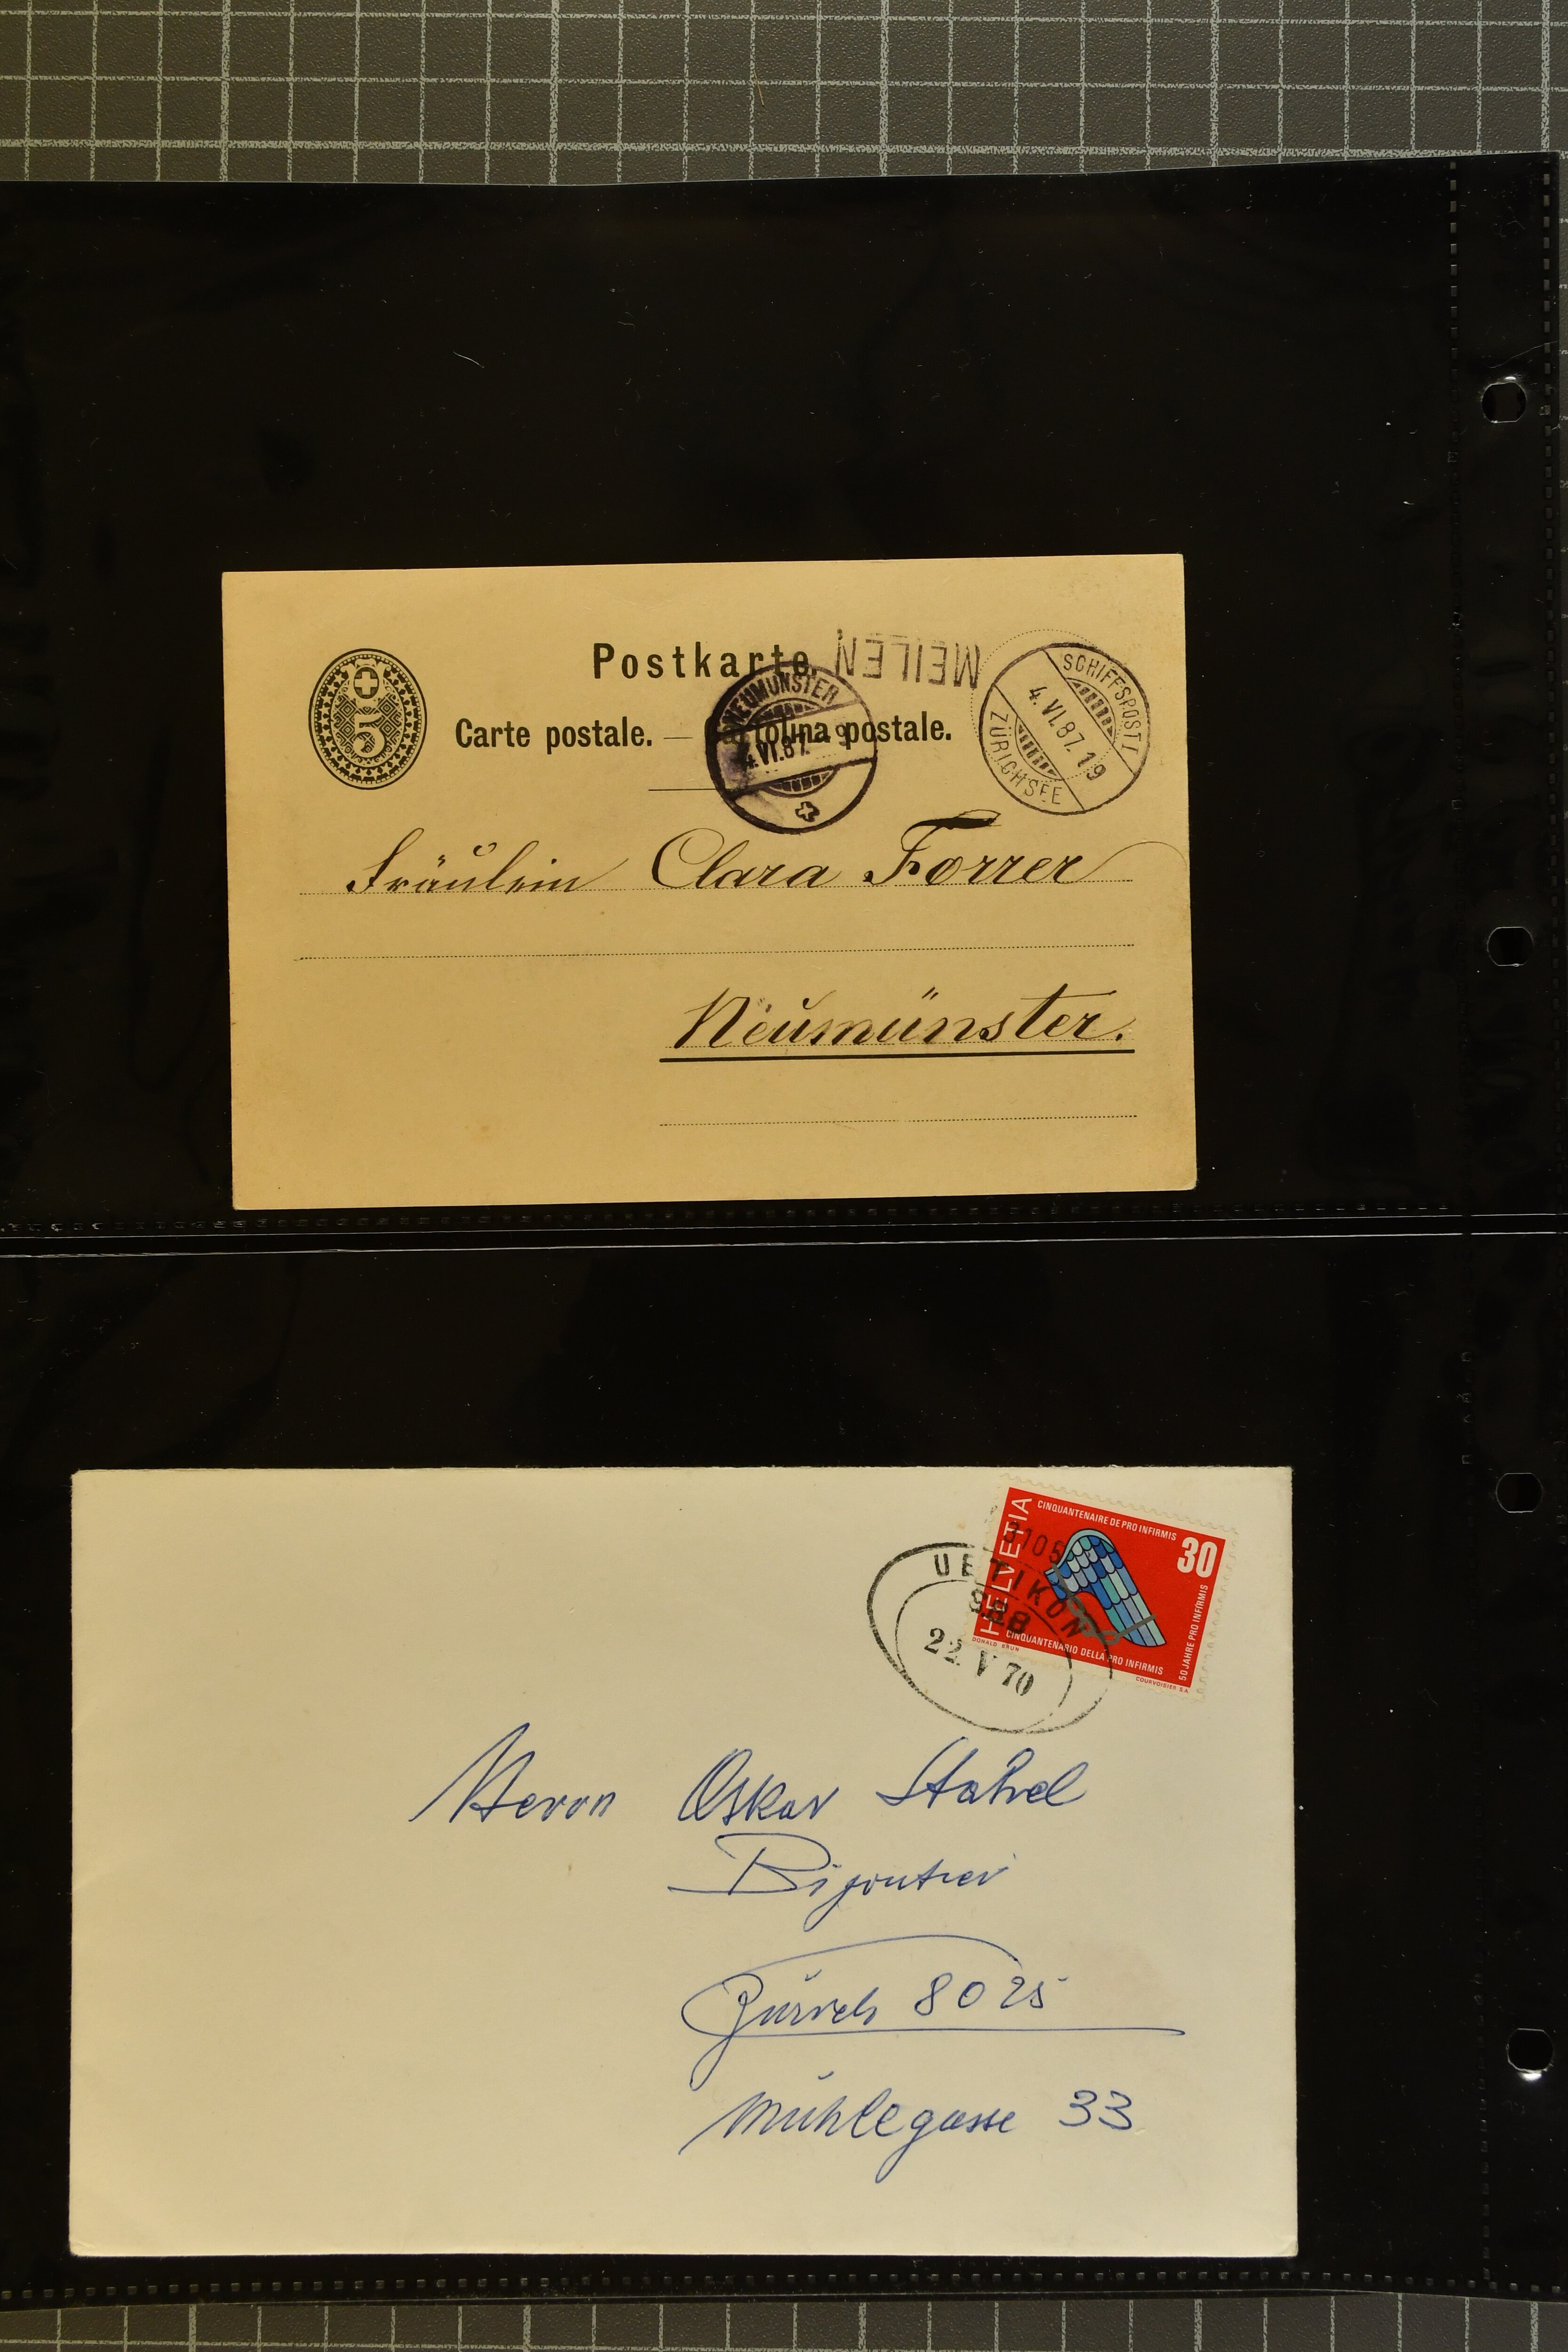 Postkarte.
MEILEN
Carte postale. — Cartolina postale.
5
NEUMÜNSTER
4.VI.87. 9
SCHIFFSPOST I
4.VI.87.19
ZÜRICHSEE
Fräulein Clara Forrer
Neumünster.
HELVETIA
CINQUANTENAIRE DE PRO INFIRMIS
30
50 JAHRE PRO INFIRMIS
CINQUANTENARIO DELLA PRO INFIRMIS
DONALD BRUN
COURVOISIER S.A.
3105
UETIKON
SBB
22. V 70
Herrn Oskar Stahel
Bijoutier
Zürich 8025
Mühlegasse 33